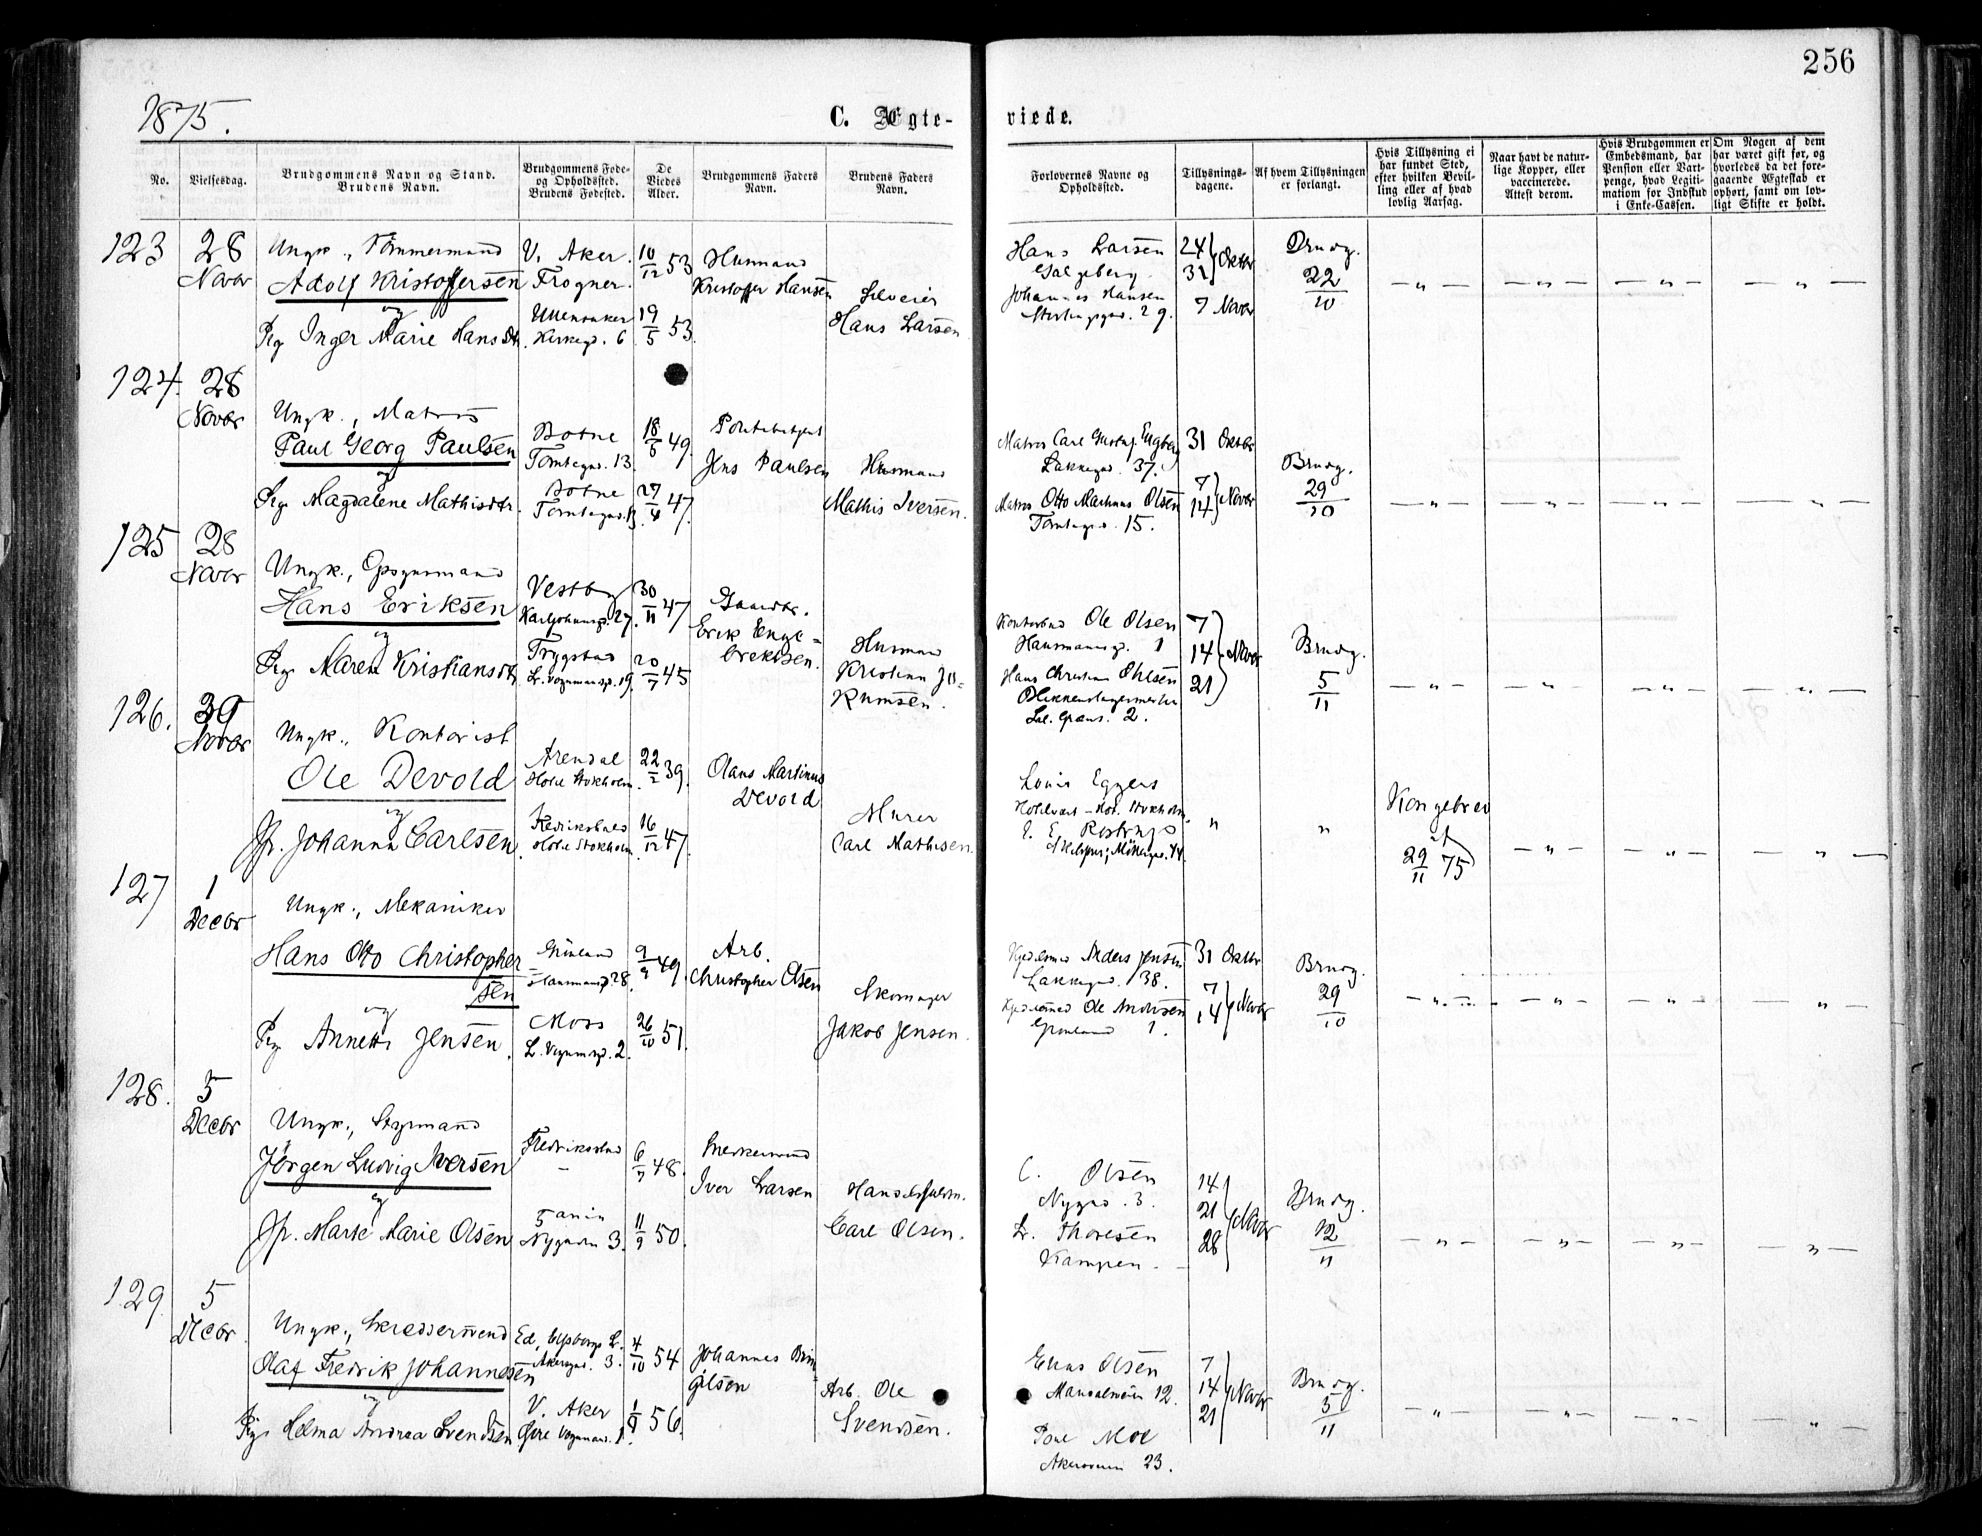 256
1875.
C. Ægte-
viede.
No.
Vielsesdag.
Brudgommens Navn og Stand.
Brudens Navn.
Brudgommens Føde-
og Opholdssted.
Brudens Fødested.
De
Viedes
Alder.
Brudgommens Faders
Navn.
Brudens Faders
Navn.
Forlovernes Navne og
Opholdssted.
Tillysnings-
dagene.
Af hvem Tillysningen
er forlangt.
Hvis Tillysning ei
har fundet Sted,
efter hvilken Bevil-
ling eller af hvad
lovlig Aarsag.
Naar havt de natur-
lige Kopper, eller
vaccinerede.
Attest derom.
Hvis Brudgommen er
Embedsmand, har
Pension eller Vart-
penge, hvad Legiti-
mation for Indskud
i Enke-Cassen.
Om Nogen af dem
har været gift før, og
hvorledes da det fore-
gaaende Ægteskab er
ophørt, samt om lov-
ligt Skifte er holdt.
123
28
Novbr
Ungk., Tømmermand
Adolf Kristoffersen
og
Pig Inger Marie Hansdtr.
V. Aker.
Frogner.
Ullensaker
Kirkegd. 6
10/12 53
19/5 53.
Husmand
Kristoffer Hansen
Hans Larsen
Hans Larsen
Galgeberg.
Johannes Hansen
29.
24
31 Oktbr
7 Novbr
Brudg.
22/10
124.
28
Novbr
Ungk., Matros
Paul Georg Paulsen
og
Pig Magdalene Mathisdtr.
Botne
Tomtegd. 13.
Botne
Tomtegd. 13.
18/5 49.
27/4 47.
Jens Paulsen
Husmand
Mathis Iversen.
Matros Carl Gustaf Engberg
Lakkegd. 37.
Matros Otto Martinus Olsen
Tomtegd. 15.
31 Oktbr
7
14 Novbr
Brudg.
29/10
125
28
Novbr
Ungk., Opsynsmand
Hans Eriksen
og
Pig Maren Kristiansdtr
Vestby
Karljohansgd. 27.
Trygstad
L. Vognmansgd. 19.
30/11 47
20/7 45
Gaardbr.
Erik Enge-
brektsen.
Husmand
Kristian Jo-
kumsen.
Kontorbud Ole Olsen
Hausmannsgd. 1
Hans Christian Olsen
Blikkenslagermester
2.
7
14
21 Novbr
Brudg.
5/11
126.
29
Novbr
Ungk., Kontorist
Ole Devold
og
Jfr. Johanna Carlsen.
Arendal
Hotel Stokholm.
Fredrikshald
Hotel Stokholm.
22/2 39.
16/12 47.
Olaus Martinus
Devold
Murer
Carl Mathisen.
Louis Eggers
Hotelvært - Hot. Stokholm.
Kongebrev
af
29/11 75
127
1
Decbr
Ungk., Mekaniker
Hans Otto Christopher
sen
og
Pig Annette Jensen.
Grønland
Hausmansgd 28.
Moss
L. Vognmgd. 2.
9/9 49.
26/10 51.
Arb.
Christopher Olsen
Skomager
Jakob Jensen.
Anders Jensen
Lakkegd. 38.
Ole Andersen
Grønland 1.
31 Oktbr
7
14 Novbr
Brudg.
29/10
128.
5
Decbr
Ungk., Styrmand
Jörgen Ludvig Iversen
og
Jfr. Marte Marie Olsen
Fredrikstad
Nygaden 3.
6/7 48.
11/9 50.
Snekkersvend
Iver Larsen
Carl Olsen.
C. Olsen
Nygd. 3.
L. Thoresen
Kampen.
14
21
28 Novbr
Brudg.
12/11
129.
5
Decbr.
Ungk., Skreddersvend
Olaf Fredrik Johannesen
og
Pig Helma Andrea Svendsen
Ed, Elfsborgs L.
Akersgd. 3.
V. Aker
Øvre Vognmansgd. 1.
4/10 54
1/9 56.
Johannes Bin
gelsen
Arb. Ole
Svendsen.
Elias Olsen
12.
Poul Moe
Akersveien 23.
7
14
21 Novbr
Brudg.
5/11